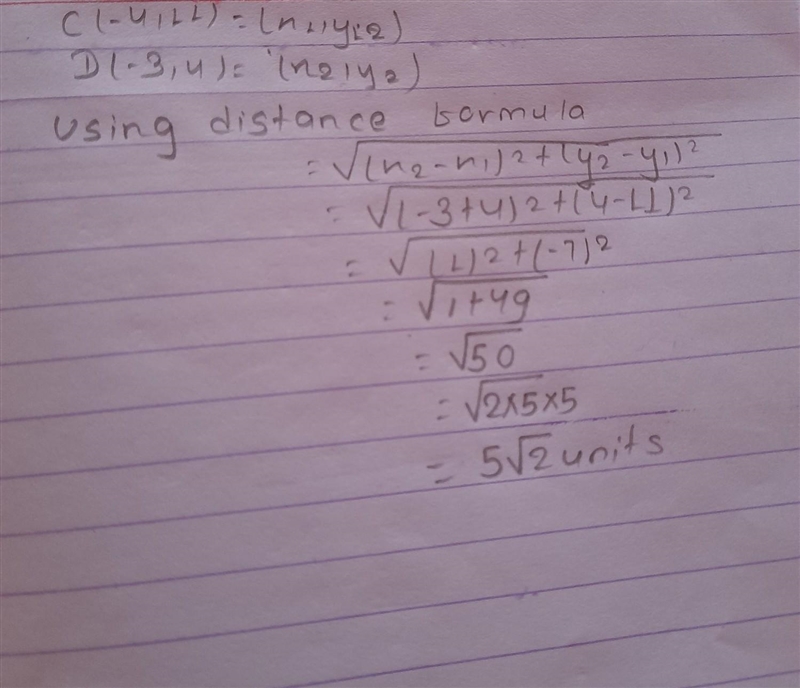 C(-4,11) = (x1,y2)
D(-3,4) = (x2,y2)
Using distance formula
= √(x2-x1)2+(y2-y1)²
= √(-3+4)2+(4-11)²
= √(1)2+(-7)2
= √1+49
= √50
= √2×5×5
= 5√2 units